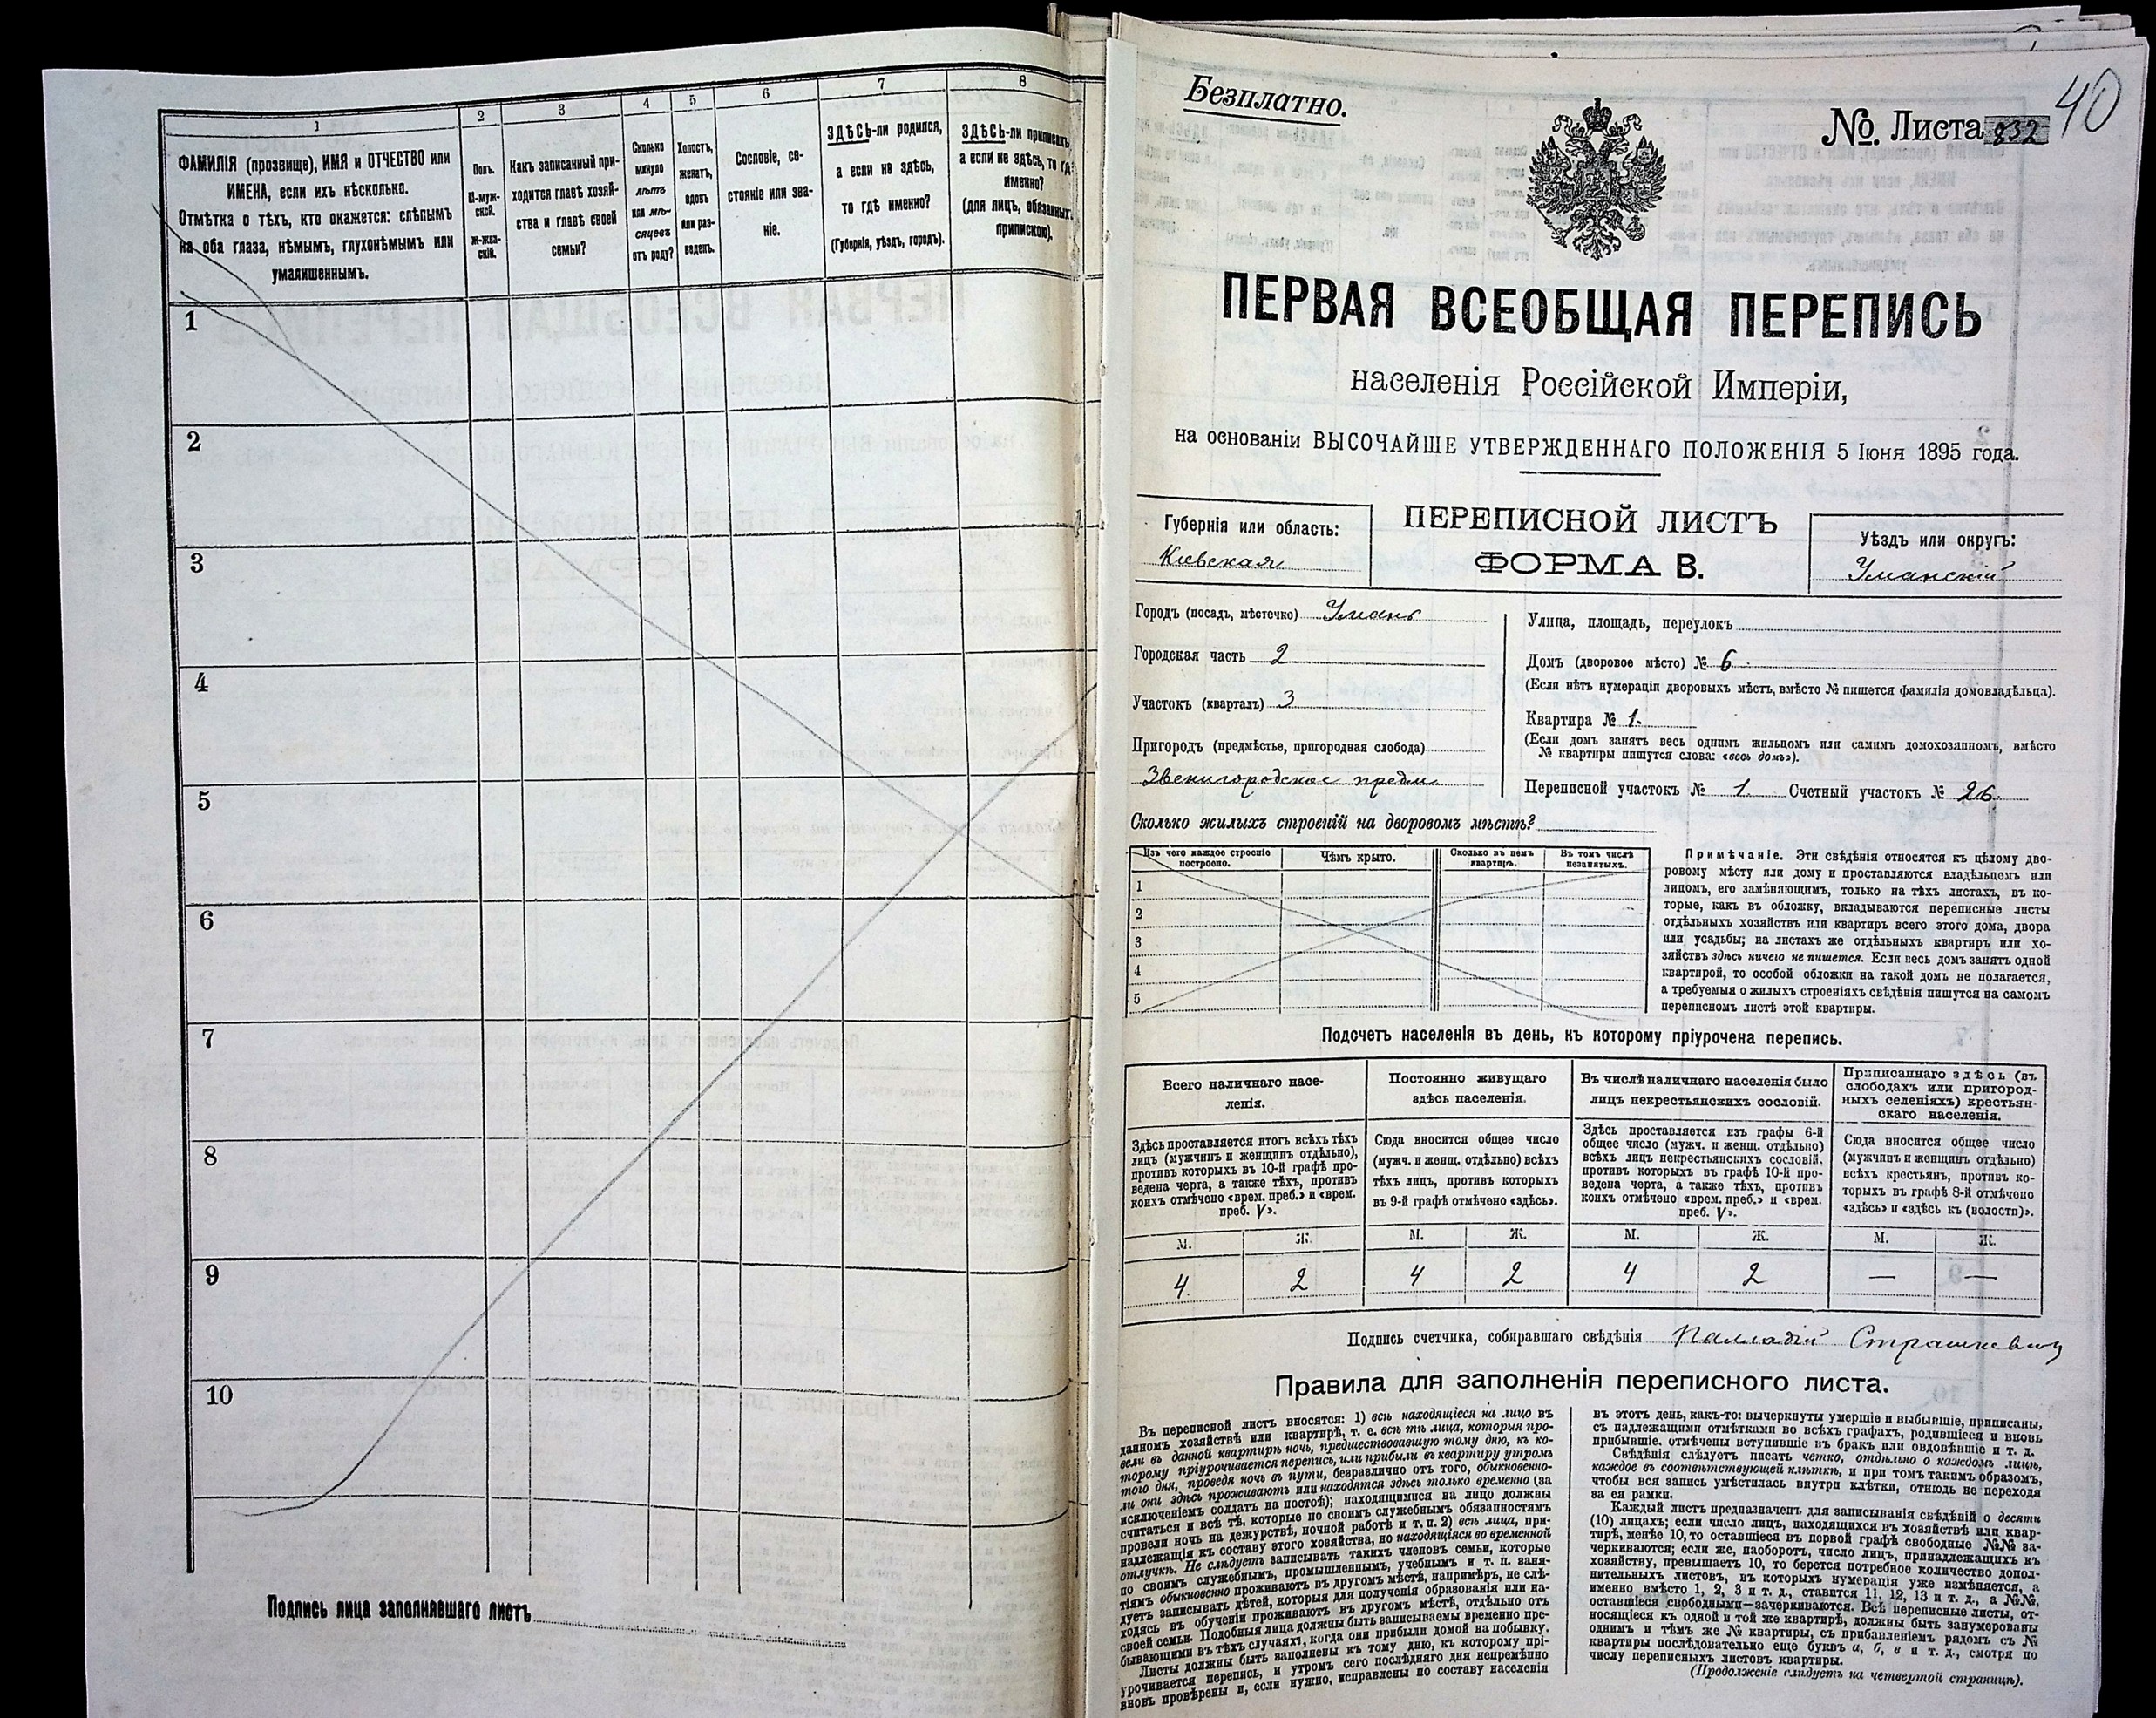 1
2
3
4
5
6
7
8
ФАМИЛІЯ (прозвище), ИМЯ и ОТЧЕСТВО или
ИМЕНА, если ихъ нѣсколько.
Отмѣтка о тѣхъ, кто окажется: слѣпымъ
на оба глаза, нѣмымъ, глухонѣмымъ или
умалишеннымъ.
Полъ.
М-муж-
ской.
Ж-жен-
скій.
Какъ записанный при-
ходится главѣ хозяй-
ства и главѣ своей
семьи?
Сколько
минуло
лѣтъ
или мѣ-
сяцевъ
отъ роду?
Холостъ,
женатъ,
вдовъ
или раз-
веденъ.
Сословіе, со-
стояніе или зва-
ніе.
ЗДѢСЬ-ли родился,
а если не здѣсь,
то гдѣ именно?
(Губернія, уѣздъ, городъ).
ЗДѢСЬ-ли приписанъ,
а если не здѣсь, то гдѣ
именно?
(для лицъ, обязанныхъ
припискою).
1
2
3
4
5
6
7
8
9
10
Подпись лица заполнявшаго листъ
40
Безплатно.
№. Листа 832
ПЕРВАЯ ВСЕОБЩАЯ ПЕРЕПИСЬ
населенія Россійской Имперіи,
на основаніи ВЫСОЧАЙШЕ УТВЕРЖДЕННАГО ПОЛОЖЕНІЯ 5 Іюня 1895 года.
ПЕРЕПИСНОЙ ЛИСТЪ
ФОРМА В.
Губернія или область:
Кіевская
Уѣздъ или округъ:
Уманскій
Городъ (посадъ, мѣстечко) Умань
Городская часть 2
Участокъ (кварталъ) 3
Пригородъ (предмѣстье, пригородная слобода)
Звенигородское предм.
Улица, площадь, переулокъ
Домъ (дворовое мѣсто) № 6
(Если нѣтъ нумераціи дворовыхъ мѣстъ, вмѣсто № пишется фамилія домовладѣльца).
Квартира № 1.
(Если домъ занятъ весь однимъ жильцомъ или самимъ домохозяиномъ, вмѣсто
№ квартиры пишутся слова: «весь домъ»).
Переписной участокъ № 1. Счетный участокъ № 26.
Сколько жилыхъ строеній на дворовомъ мѣстѣ?
Изъ чего каждое строеніе
построено.
Чѣмъ крыто.
Сколько въ немъ
квартиръ.
Въ томъ числѣ
незанятыхъ.
1
2
3
4
5
Примѣчаніе. Эти свѣдѣнія относятся къ цѣлому дво-
ровому мѣсту или дому и проставляются владѣльцомъ или
лицомъ, его замѣняющимъ, только на тѣхъ листахъ, въ ко-
торые, какъ въ обложку, вкладываются переписные листы
отдѣльныхъ хозяйствъ или квартиръ всего этого дома, двора
или усадьбы; на листахъ же отдѣльныхъ квартиръ или хо-
зяйствъ здѣсь ничего не пишется. Если весь домъ занятъ одной
квартирой, то особой обложки на такой домъ не полагается,
а требуемыя о жилыхъ строеніяхъ свѣдѣнія пишутся на самомъ
переписномъ листѣ этой квартиры.
Подсчетъ населенія въ день, къ которому пріурочена перепись.
Всего наличнаго насе-
ленія.
Постоянно живущаго
здѣсь населенія.
Въ числѣ наличнаго населенія было
лицъ некрестьянскихъ сословій.
Приписаннаго здѣсь (въ
слободахъ или пригород-
ныхъ селеніяхъ) крестьян-
скаго населенія.
Здѣсь проставляется итогъ всѣхъ тѣхъ
лицъ (мужчинъ и женщинъ отдѣльно),
противъ которыхъ въ 10-й графѣ про-
ведена черта, а также тѣхъ, противъ
коихъ отмѣчено «врем. преб.» и «врем.
преб. V».
Сюда вносится общее число
(мужч. и женщ. отдѣльно) всѣхъ
тѣхъ лицъ, противъ которыхъ
въ 9-й графѣ отмѣчено «здѣсь».
Здѣсь проставляется изъ графы 6-й
общее число (мужч. и женщ. отдѣльно)
всѣхъ лицъ некрестьянскихъ сословій,
противъ которыхъ въ графѣ 10-й про-
ведена черта, а также тѣхъ, противъ
коихъ отмѣчено «врем. преб.» и «врем.
преб. V».
Сюда вносится общее число
(мужчинъ и женщинъ отдѣльно)
всѣхъ крестьянъ, противъ ко-
торыхъ въ графѣ 8-й отмѣчено
«здѣсь» и «здѣсь къ (волости)».
М. Ж. М. Ж. М. Ж. М. Ж.
4 2 4 2 4 2 — —
Подпись счетчика, собиравшаго свѣдѣнія Палладій Страшкевичъ
Правила для заполненія переписного листа.
Въ переписной листъ вносятся: 1) всѣ находящіеся на лицо въ
данномъ хозяйствѣ или квартирѣ, т. е. всѣ тѣ лица, которыя про-
вели въ данной квартирѣ ночь, предшествовавшую тому дню, къ ко-
торому пріурочивается перепись, или прибыли въ квартиру утромъ
того дня, проведя ночь въ пути, безразлично отъ того, обыкновенно-
ли они здѣсь проживаютъ или находятся здѣсь только временно (за
исключеніемъ солдатъ на постоѣ); находящимися на лицо должны
считаться и всѣ тѣ, которые по своимъ служебнымъ обязанностямъ
провели ночь на дежурствѣ, ночной работѣ и т. п. 2) всѣ лица, при-
надлежащія къ составу этого хозяйства, но находящіяся во временной
отлучкѣ. Не слѣдуетъ записывать такихъ членовъ семьи, которые
по своимъ служебнымъ, промышленнымъ, учебнымъ и т. п. заня-
тіямъ обыкновенно проживаютъ въ другомъ мѣстѣ, напримѣръ, не слѣ-
дуетъ записывать дѣтей, которыя для полученія образованія или на-
ходясь въ обученіи проживаютъ въ другомъ мѣстѣ, отдѣльно отъ
своей семьи. Подобныя лица должны быть записываемы временно пре-
бывающими въ тѣхъ случаяхъ, когда они прибыли домой на побывку.
Листы должны быть заполнены къ тому дню, къ которому прі-
урочивается перепись, и утромъ сего послѣдняго дня непремѣнно
вновь провѣрены и, если нужно, исправлены по составу населенія
въ этотъ день, какъ-то: вычеркнуты умершіе и выбывшіе, приписаны,
съ надлежащими отмѣтками во всѣхъ графахъ, родившіеся и вновь
прибывшіе, отмѣчены вступившіе въ бракъ или овдовѣвшіе и т. д.
Свѣдѣнія слѣдуетъ писать четко, отдѣльно о каждомъ лицѣ,
каждое въ соотвѣтствующей клѣткѣ, и при томъ такимъ образомъ,
чтобы вся запись умѣстилась внутри клѣтки, отнюдь не переходя
за ея рамки.
Каждый листъ предназначенъ для записыванія свѣдѣній о десяти
(10) лицахъ; если число лицъ, находящихся въ хозяйствѣ или квар-
тирѣ, менѣе 10, то оставшіеся въ первой графѣ свободные №№ за-
черкиваются; если же, наоборотъ, число лицъ, принадлежащихъ къ
хозяйству, превышаетъ 10, то берется потребное количество допол-
нительныхъ листовъ, въ которыхъ нумерація уже измѣняется, а
именно вмѣсто 1, 2, 3 и т. д., ставится 11, 12, 13 и т. д., а №№,
оставшіеся свободными—зачеркиваются. Всѣ переписные листы, от-
носящіеся къ одной и той же квартирѣ, должны быть занумерованы
однимъ и тѣмъ же № квартиры, съ прибавленіемъ рядомъ съ №
квартиры послѣдовательно еще буквъ а, б, в и т. д., смотря по
числу переписныхъ листовъ квартиры.
(Продолженіе слѣдуетъ на четвертой страницѣ).